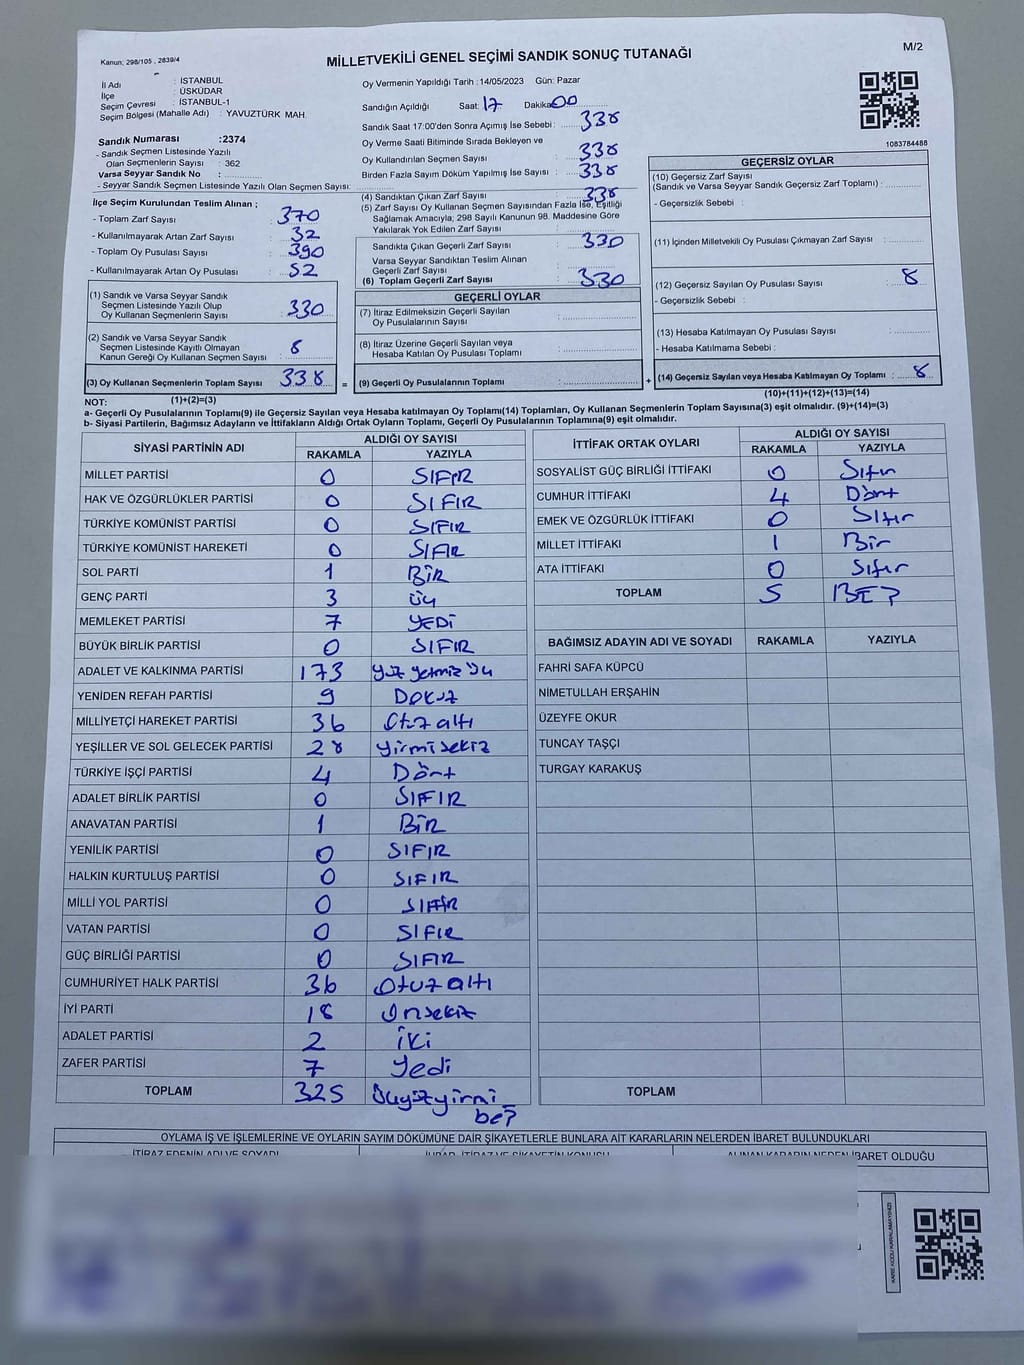 Kanun; 298/105 , 2839/4
MİLLETVEKİLİ GENEL SEÇİMİ SANDIK SONUÇ TUTANAĞI
M/2
İl Adı : İSTANBUL
İlçe : ÜSKÜDAR
Seçim Çevresi : İSTANBUL-1
Seçim Bölgesi (Mahalle Adı) : YAVUZTÜRK MAH.
Sandık Numarası :2374
- Sandık Seçmen Listesinde Yazılı
Olan Seçmenlerin Sayısı : 362
Varsa Seyyar Sandık No :
- Seyyar Sandık Seçmen Listesinde Yazılı Olan Seçmen Sayısı:
Oy Vermenin Yapıldığı Tarih : 14/05/2023 Gün: Pazar
Sandığın Açıldığı Saat: 17 Dakika: 00
Sandık Saat 17:00'den Sonra Açımış İse Sebebi : 338
Oy Verme Saati Bitiminde Sırada Bekleyen ve
Oy Kullandırılan Seçmen Sayısı : 338
Birden Fazla Sayım Döküm Yapılmış İse Sayısı : 338
1083784488
İlçe Seçim Kurulundan Teslim Alınan ;
- Toplam Zarf Sayısı : 370
- Kullanılmayarak Artan Zarf Sayısı : 32
- Toplam Oy Pusulası Sayısı : 390
- Kullanılmayarak Artan Oy Pusulası : 52
(1) Sandık ve Varsa Seyyar Sandık
Seçmen Listesinde Yazılı Olup
Oy Kullanan Seçmenlerin Sayısı : 330
(2) Sandık ve Varsa Seyyar Sandık
Seçmen Listesinde Kayıtlı Olmayan
Kanun Gereği Oy Kullanan Seçmen Sayısı : 8
(3) Oy Kullanan Seçmenlerin Toplam Sayısı 338 =
(1)+(2)=(3)
(4) Sandıktan Çıkan Zarf Sayısı : 338
(5) Zarf Sayısı Oy Kullanan Seçmen Sayısından Fazla İse, Eşitliği
Sağlamak Amacıyla; 298 Sayılı Kanunun 98. Maddesine Göre
Yakılarak Yok Edilen Zarf Sayısı :
Sandıkta Çıkan Geçerli Zarf Sayısı : 330
Varsa Seyyar Sandıktan Teslim Alınan
Geçerli Zarf Sayısı :
(6) Toplam Geçerli Zarf Sayısı : 330
GEÇERLİ OYLAR
(7) İtiraz Edilmeksizin Geçerli Sayılan
Oy Pusulalarının Sayısı :
(8) İtiraz Üzerine Geçerli Sayılan veya
Hesaba Katılan Oy Pusulası Toplamı :
(9) Geçerli Oy Pusulalarının Toplamı : +
GEÇERSİZ OYLAR
(10) Geçersiz Zarf Sayısı
(Sandık ve Varsa Seyyar Sandık Geçersiz Zarf Toplamı) :
- Geçersizlik Sebebi :
(11) İçinden Milletvekili Oy Pusulası Çıkmayan Zarf Sayısı :
(12) Geçersiz Sayılan Oy Pusulası Sayısı : 8
- Geçersizlik Sebebi :
(13) Hesaba Katılmayan Oy Pusulası Sayısı :
- Hesaba Katılmama Sebebi :
(14) Geçersiz Sayılan veya Hesaba Katılmayan Oy Toplamı : 8
(10)+(11)+(12)+(13)=(14)
NOT:
a- Geçerli Oy Pusulalarının Toplamı(9) ile Geçersiz Sayılan veya Hesaba katılmayan Oy Toplamı(14) Toplamları, Oy Kullanan Seçmenlerin Toplam Sayısına(3) eşit olmalıdır. (9)+(14)=(3)
b- Siyasi Partilerin, Bağımsız Adayların ve İttifakların Aldığı Ortak Oyların Toplamı, Geçerli Oy Pusulalarının Toplamına(9) eşit olmalıdır.
SİYASİ PARTİNİN ADI
ALDIĞI OY SAYISI
RAKAMLA YAZIYLA
MİLLET PARTİSİ 0 SIFIR
HAK VE ÖZGÜRLÜKLER PARTİSİ 0 SIFIR
TÜRKİYE KOMÜNİST PARTİSİ 0 SIFIR
TÜRKİYE KOMÜNİST HAREKETİ 0 SIFIR
SOL PARTİ 1 BİR
GENÇ PARTİ 3 üç
MEMLEKET PARTİSİ 7 YEDİ
BÜYÜK BİRLİK PARTİSİ 0 SIFIR
ADALET VE KALKINMA PARTİSİ 173 yüz yetmiz üç
YENİDEN REFAH PARTİSİ 9 DOKUZ
MİLLİYETÇİ HAREKET PARTİSİ 36 Otuz altı
YEŞİLLER VE SOL GELECEK PARTİSİ 28 yirmi sekiz
TÜRKİYE İŞÇİ PARTİSİ 4 Dört
ADALET BİRLİK PARTİSİ 0 SIFIR
ANAVATAN PARTİSİ 1 BİR
YENİLİK PARTİSİ 0 SIFIR
HALKIN KURTULUŞ PARTİSİ 0 SIFIR
MİLLİ YOL PARTİSİ 0 SIFIR
VATAN PARTİSİ 0 SIFIR
GÜÇ BİRLİĞİ PARTİSİ 0 SIFIR
CUMHURİYET HALK PARTİSİ 36 Otuz altı
İYİ PARTİ 18 Onsekiz
ADALET PARTİSİ 2 iki
ZAFER PARTİSİ 7 Yedi
TOPLAM 325 Üçyüzyirmi
beş
İTTİFAK ORTAK OYLARI
ALDIĞI OY SAYISI
RAKAMLA YAZIYLA
SOSYALİST GÜÇ BİRLİĞİ İTTİFAKI 0 Sıfır
CUMHUR İTTİFAKI 4 Dört
EMEK VE ÖZGÜRLÜK İTTİFAKI 0 Sıfır
MİLLET İTTİFAKI 1 Bir
ATA İTTİFAKI 0 Sıfır
TOPLAM 5 BEŞ
BAĞIMSIZ ADAYIN ADI VE SOYADI RAKAMLA YAZIYLA
FAHRİ SAFA KÜPCÜ
NİMETULLAH ERŞAHİN
ÜZEYFE OKUR
TUNCAY TAŞÇI
TURGAY KARAKUŞ
TOPLAM
OYLAMA İŞ VE İŞLEMLERİNE VE OYLARIN SAYIM DÖKÜMÜNE DAİR ŞİKAYETLERLE BUNLARA AİT KARARLARIN NELERDEN İBARET BULUNDUKLARI
İTİRAZ EDENİN ADI VE SOYADI
ALINAN KARARIN NEDEN İBARET OLDUĞU
KARE KODU KARALAMAYINIZ!